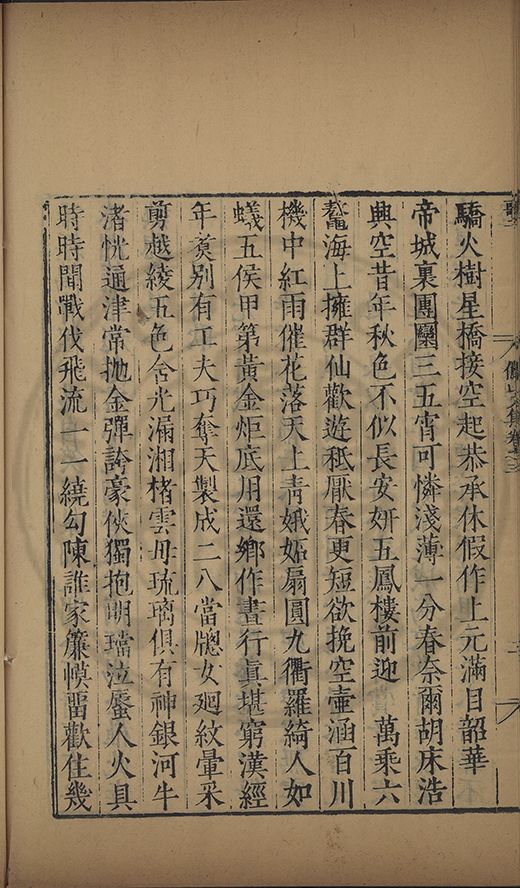 驕火樹星橋接空起恭承休假作上元滿目韶華
帝城裏團圞三五宵可憐淺薄一分春奈爾胡床浩
興空昔年秋色不似長安妍五鳳樓前迎　萬乘六
鼇海上擁群仙歡遊秪厭春更短欲挽空壺涵百川
機中紅雨催花落天上靑娥妬扇圓九衢羅綺人如
蟻五侯甲第黃金炬底用還鄉作晝行眞堪窮漢經
年蓂别有工夫巧奪天製成二八當牕女廻紋暈采
剪越綾五色含光漏湘楮雲母琉璃俱有神銀河牛
渚恍通津常抛金彈誇豪俠獨抱明璫泣蜃人火具
時時聞戰伐飛流一一繞勾陳誰家簾幙留歡住幾